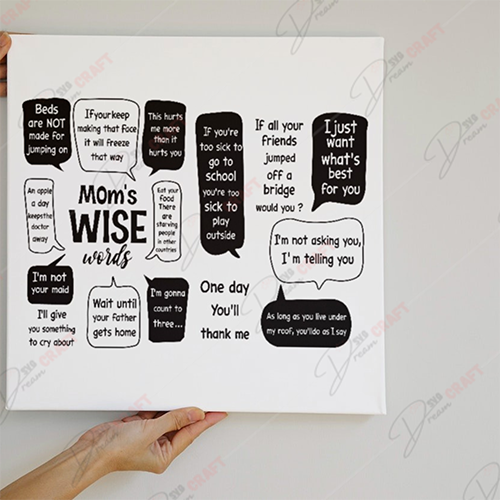 Beds
are NOT
made for
jumping on
Ifyourkeep
making that face
it will freeze
that way
This hurts
me more
than it
hurts you
If you're
too sick to
go to
school
you're too
sick to
play
outside
If all your
friends
jumped
off a
bridge
would you ?
I just
want
what's
best
for you
An apple
a day
keepsthe
doctor
away
Mom's
WISE
words
Eat your
food
There
are
starving
people
in other
countries
I'm not asking you,
I'm telling you
I'm not
your maid
I'll give
you something
to cry about
Wait until
your Father
gets home
I'm gonna
count to
three...
One day
You'll
thank me
As long as you live under
my roof, you'lldo as I say